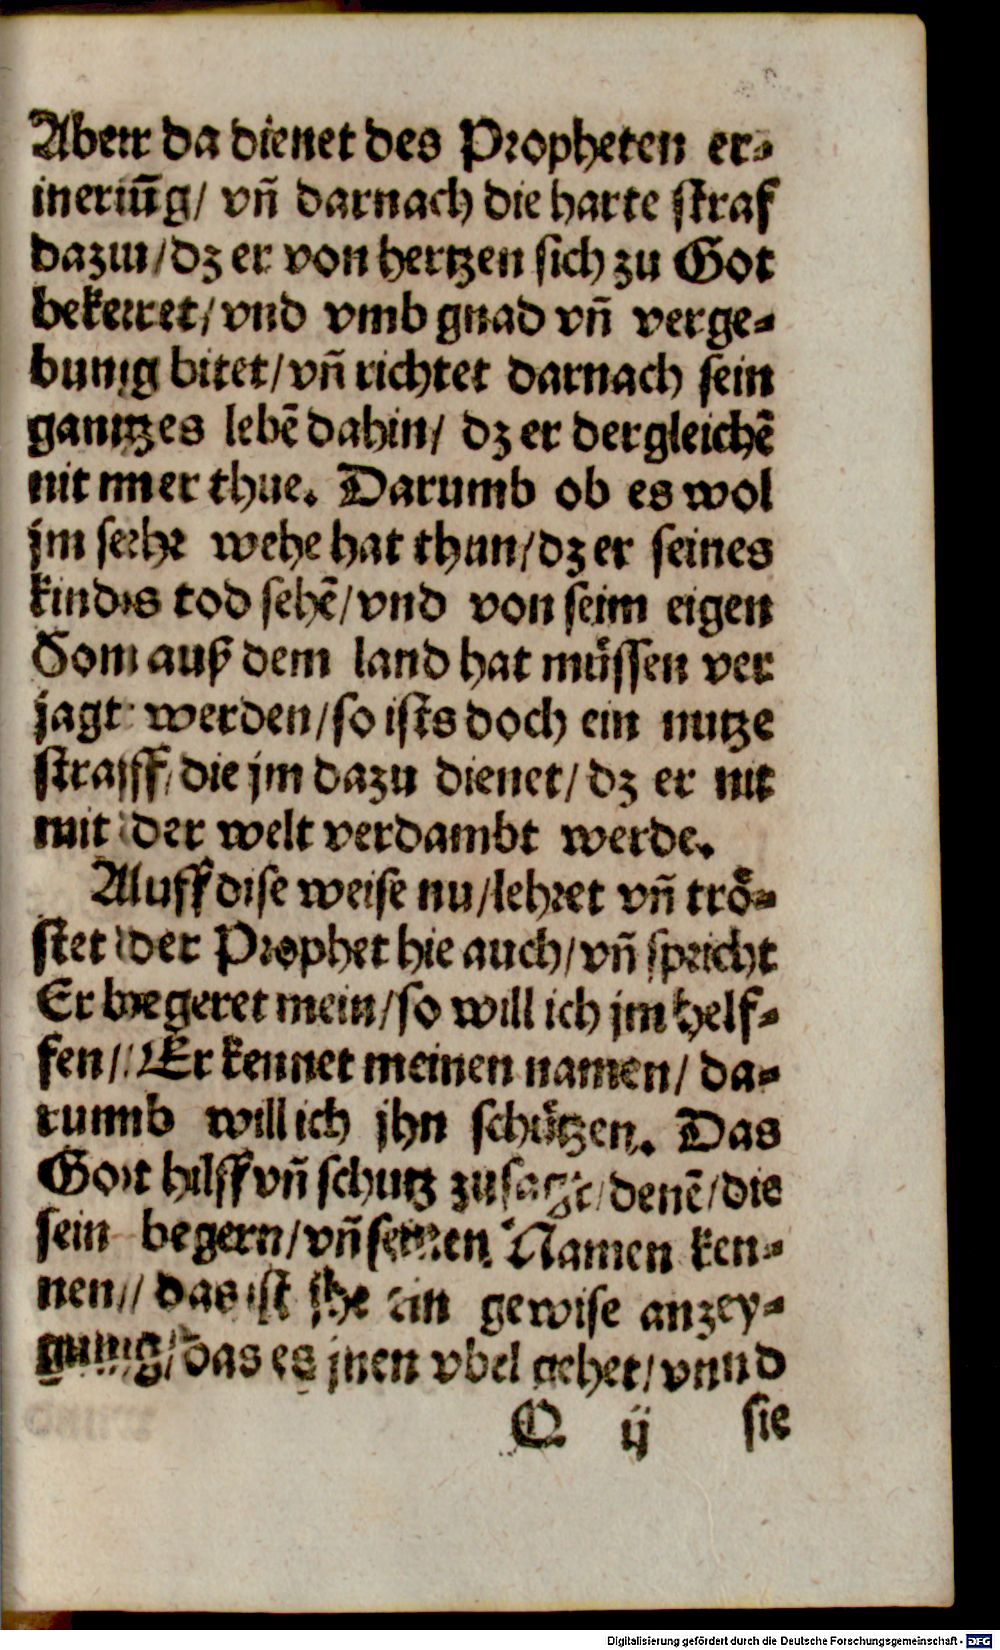 Aber da dienet des Propheten er⸗
inerūg/ vñ darnach die harte straf
dazu/dz er von hertzen sich zu Got
bekeret/ vnd vmb gnad vñ verge⸗
bung bitet/ vñ richtet darnach sein
gantzes lebē dahin/ dz er dergleichē
nit mer thue. Darumb ob es wol
jm sehr wehe hat thun/dz er seines
kindes tod sehē/ vnd von seim eigen
Son auß dem land hat müssen ver
jagt werden/so ists doch ein nutze
straff/ die jm dazu dienet/ dz er nit
mit der welt verdambt werde.
Auff dise weise nu/lehret vñ trö⸗
stet der Prophet hie auch/ vñ spricht
Er begeret mein/so will ich jm helf⸗
fen/ Er kennet meinen namen/ da⸗
rumb will ich jhn schützen. Das
Got hilff vñ schutz zusagt/ denē/die
sein begern/ vñ seinen Namen ken⸗
nen/ das ist ein gewise anzey⸗
gung/ das es jnen vbel gehet/ vnnd
Q ij sie
Digitalisierung gefördert durch die Deutsche Forschungsgemeinschaft - DFG